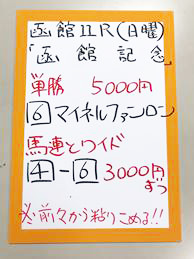 函館11R(日曜)
「函館記念」
単勝 5000円
6 マイネルファンロン
馬連とワイド
4-6 3000円ずつ
※前々から粘りこめる!!